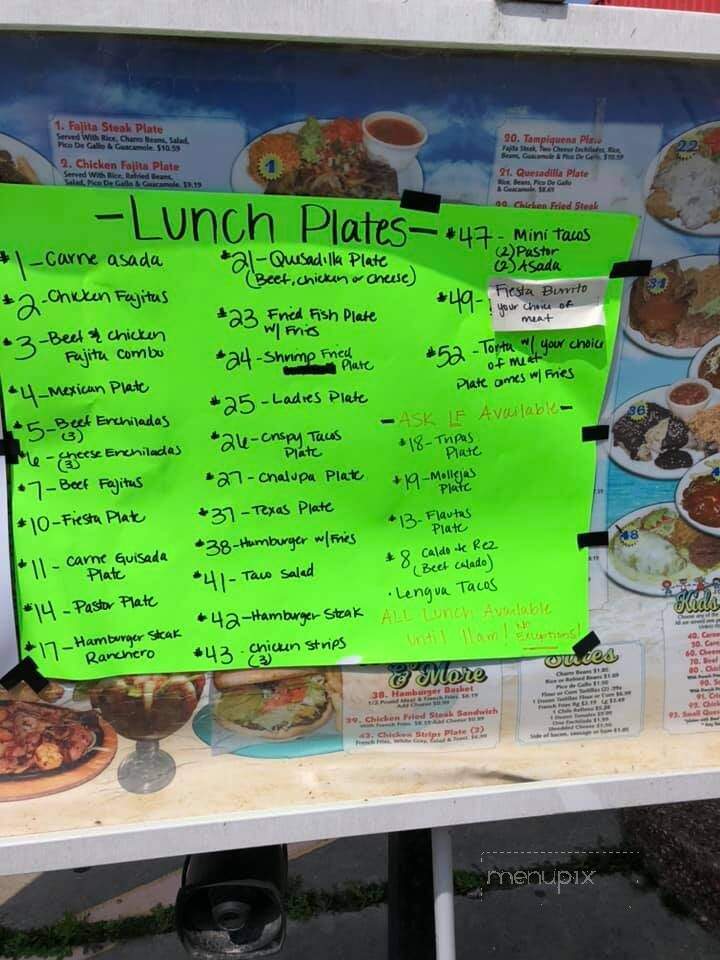 1. Fajita Steak Plate
Served With Rice, Charro Beans, Salad,
Pico De Gallo & Guacamole. $10.59
2. Chicken Fajita Plate
Served With Rice, Refried Beans,
Salad, Pico De Gallo & Guacamole. $9.19
1
20. Tampiquena Plate
Fajita Steak, Two Cheese Enchiladas, Rice,
Beans, Guacamole & Pico De Gallo. $10.59
21. Quesadilla Plate
Rice, Beans, Pico De Gallo
& Guacamole. $8.69
22. Chicken Fried Steak
22
-Lunch Plates-
#1-Carne asada
#2-Chicken Fajitas
#3-Beef & chicken
Fajita combo
#4-Mexican Plate
#5-Beef Enchiladas
(3)
#6-cheese Enchiladas
(3)
#7-Beef Fajitas
#10-Fiesta Plate
#11-Carne Guisada
Plate
#14-Pastor Plate
#17-Hamburger Steak
Ranchero
#21-Qusadilla Plate
(Beef, chicken or cheese)
#23 Fried Fish Plate
w/ Fries
#24-Shrimp Fried
Plate
#25-Ladies Plate
#26-Crispy Tacos
Plate
#27-Chalupa Plate
#37-Texas Plate
#38-Hamburger w/Fries
#41-Taco Salad
#42-Hamburger Steak
#43-Chicken Strips
(3)
#47-Mini Tacos
(2) Pastor
(2) Asada
#49-Fiesta Burrito
your choice of
meat
#52-Torta w/ your choice
of meat
Plate comes w/ Fries
-ASK IF Available-
#18-Tripas
Plate
#19-Mollejas
Plate
#13-Flautas
Plate
#8 Caldo de Rez
(Beef Calado)
·Lengua Tacos
ALL Lunch Available
until 11am! No
Exceptions!
34
36
48
& More
38. Hamburger Basket
1/2 Pound Meat & French Fries. $8.19
Add Cheese $0.99
39. Chicken Fried Steak Sandwich
43. Chicken Strips Plate (3)
French Fries, White Gravy, Salad & Toast. $8.99
Sides
Charro Beans $1.85
Rice or Refried Beans $1.89
Pico de Gallo $1.50
Side of bacon, sausage or ham $1.85
Kids
menupix